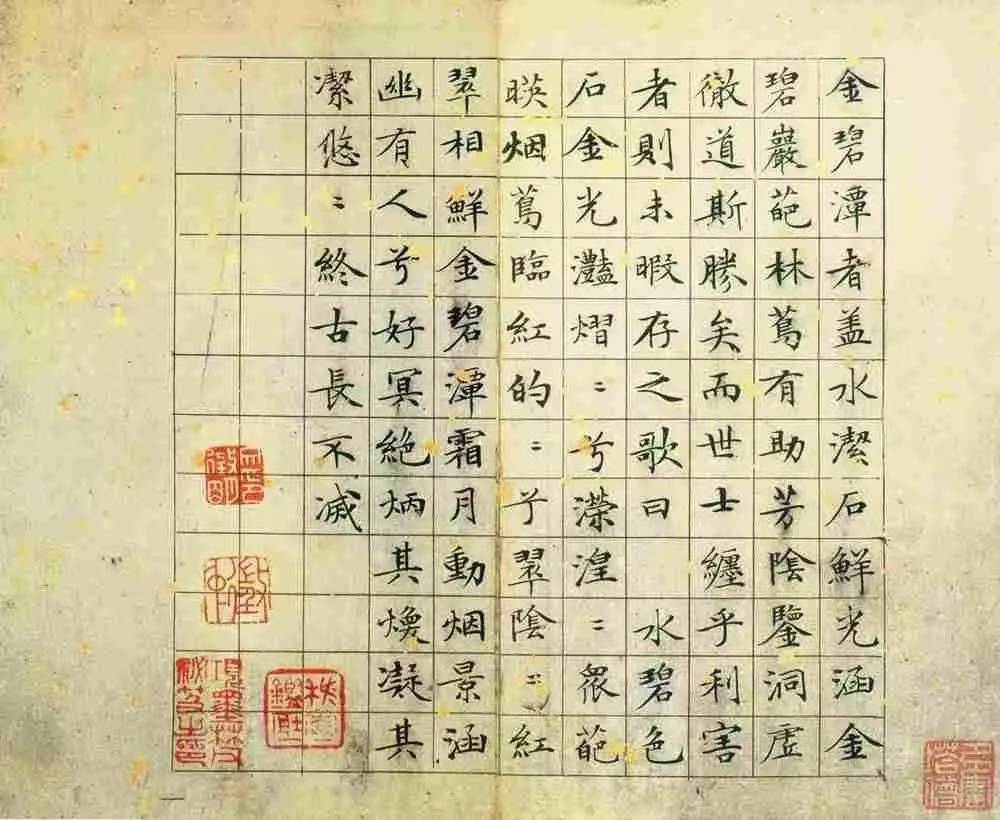 金碧潭者盖水潔石鮮光涵金
碧巖葩林蔦有助芳陰鑒洞虛
徹道斯勝矣而世士纏乎利害
者則未暇存之歌曰 水碧色
石金光灔熠〻兮濴湟〻眾葩
暎烟蔦臨紅的〻兮翠陰〻紅
翠相鮮金碧潭霜月動烟景涵
幽有人兮好冥絶炳其煥凝其
潔悠〻終古長不滅
徵明